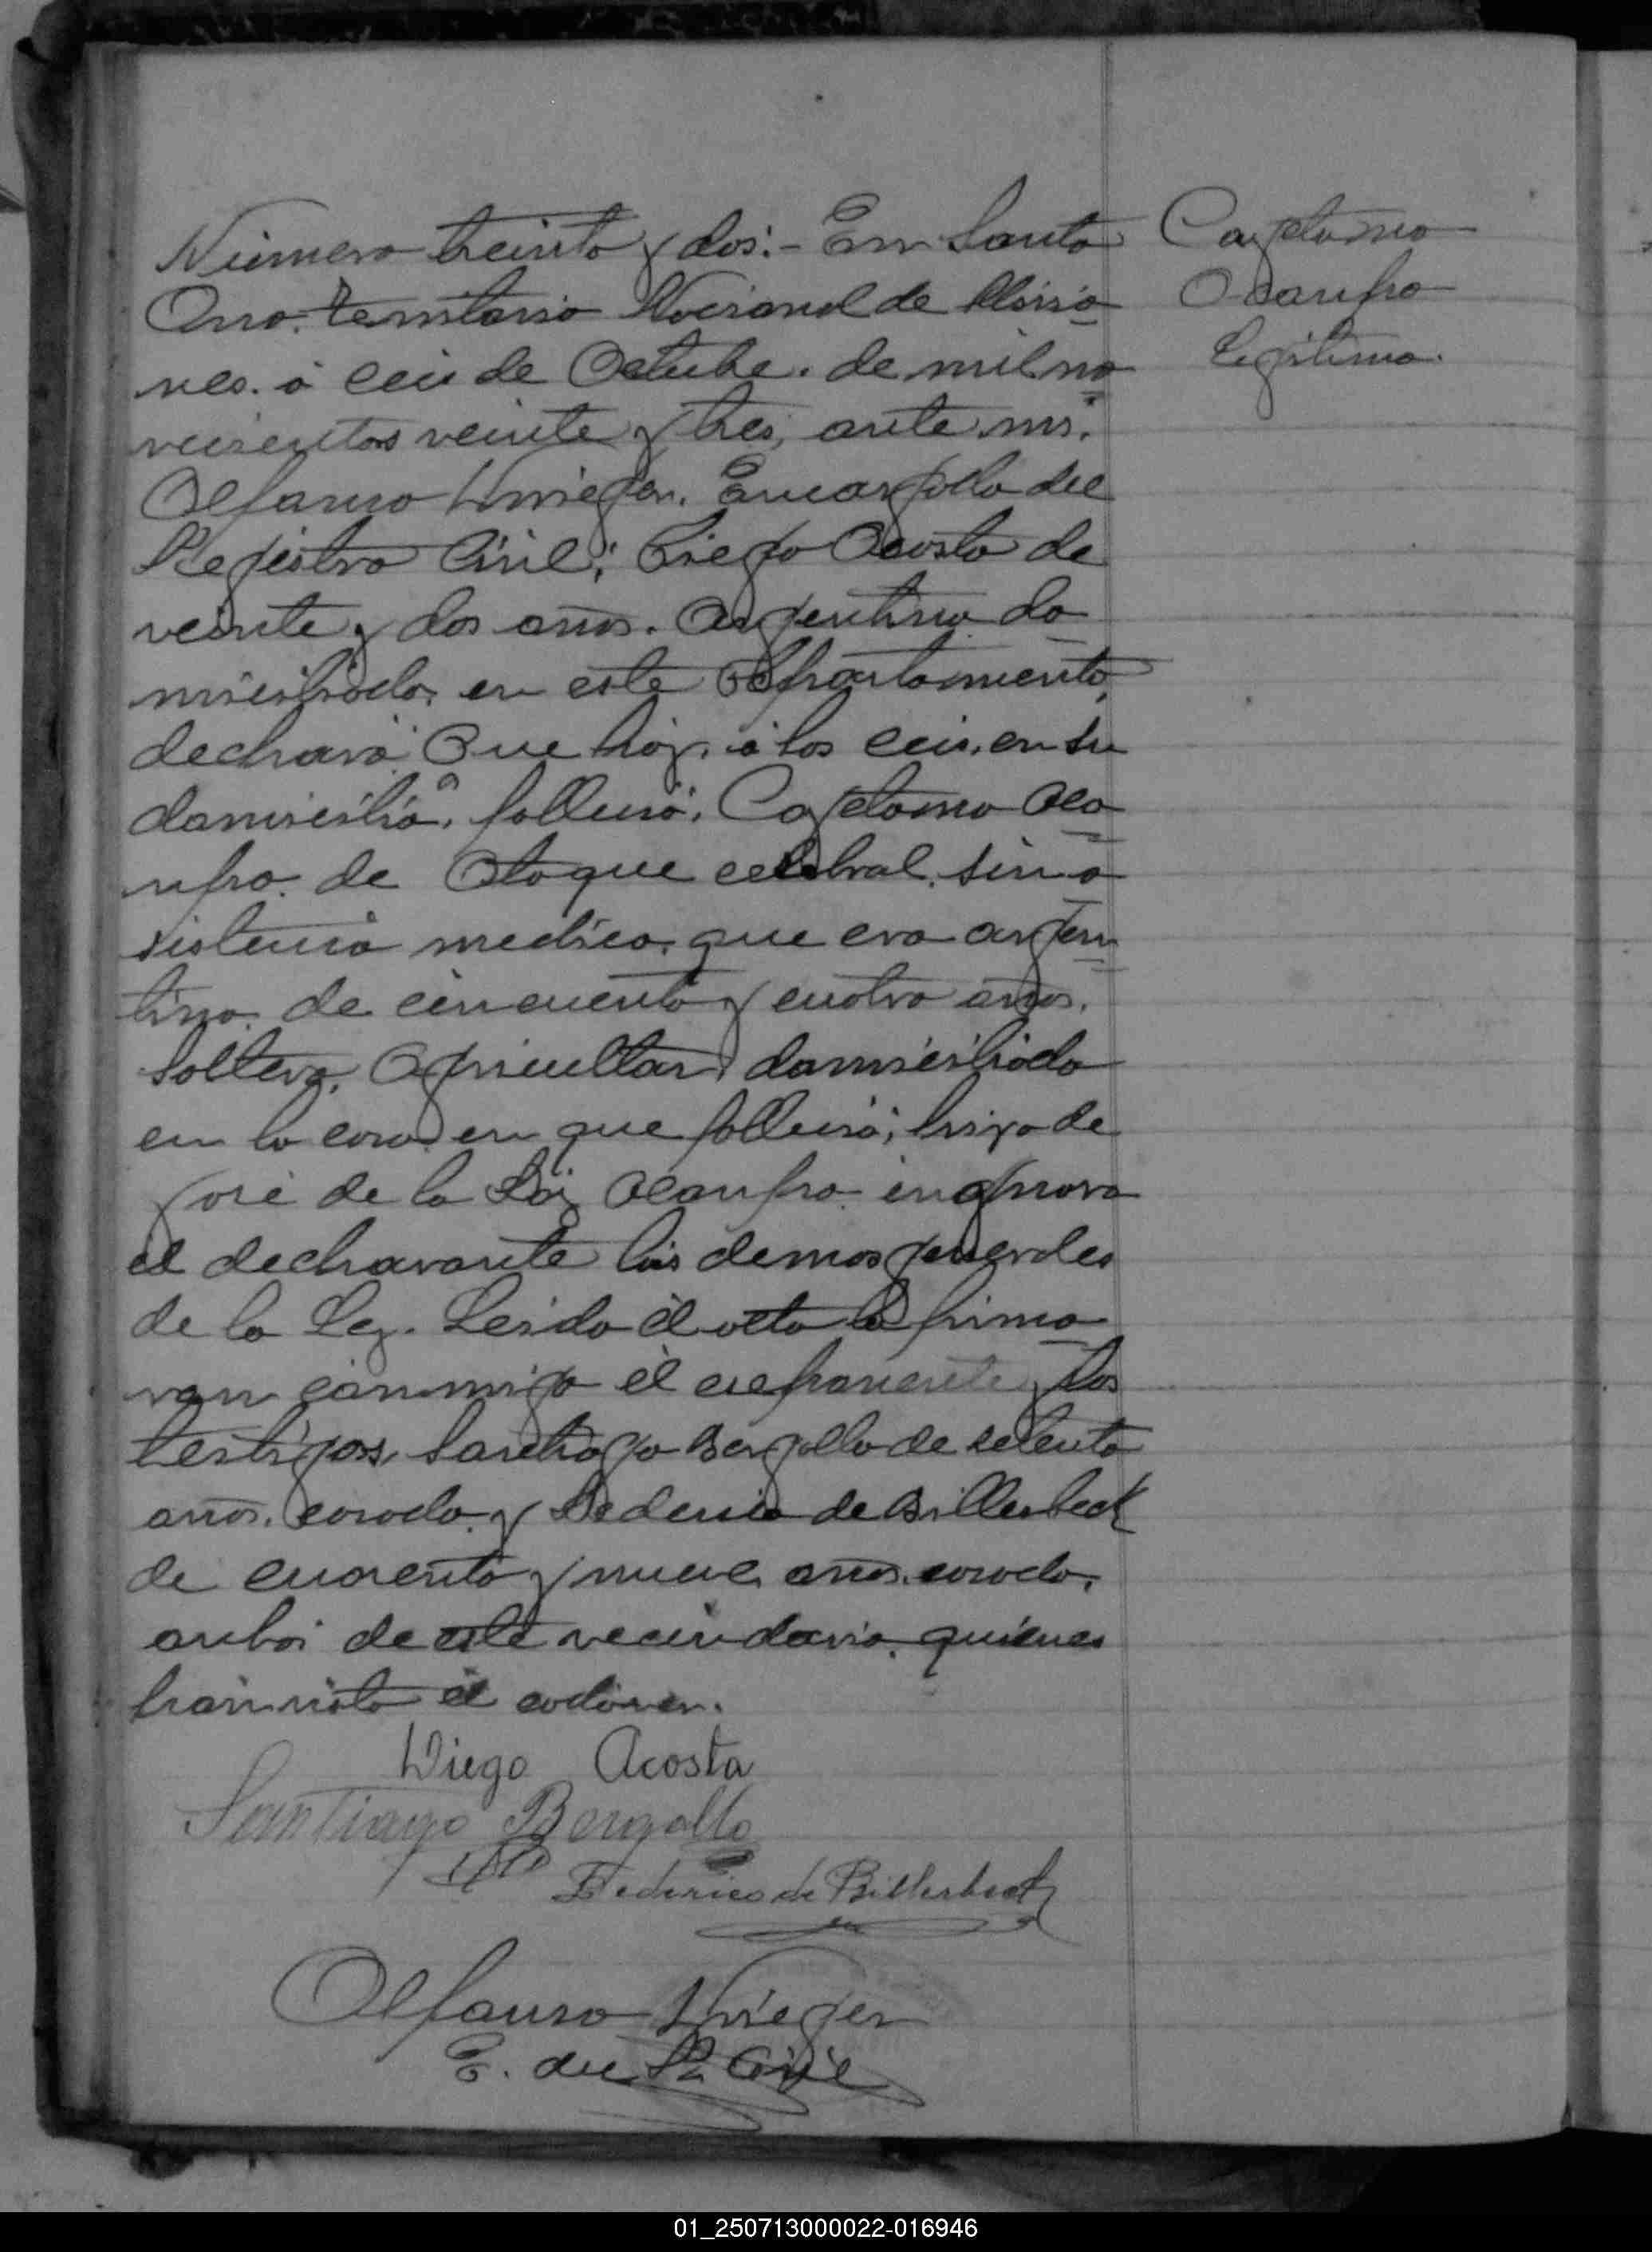 Número treinta y dos:- En Santa
Ana. territorio Nacional de Misio
nes. á ceis de Octubre. de mil no
vecientos veinte y tres, ante mi.
Alfonso Krieger. Encargado del
Registro Civil; Diego Acosta de
veinte y dos años. Argentino do
miciliado, en este departamento,
declaró: Que hoy. á las ceis, en su
domicilio, falleció, Cayetano Oca
mpo. de Ataque celebral. sin a
sistencia medica. que era argen
tino. de cincuenta y cuatro años.
Soltero, Agricultor, domiciliado
en la casa en que falleció; hijo de
José de la Paz Ocampo. ingnora
el declarante las demas generales
de la Ley. Leida el acta la firma
ron conmigo él exponente y los
testigos, Santiago Bergallo de setenta
años. casado. y Federico de Billerbeck
de cuarenta y nueve años. casado.
anbos de este vecindario. quienes
han visto el cadaver.
Diego Acosta
Santiago Bergallo
Federico de Billerbeck
Alfonso Krieger
E. del R. Civil
Cayetano
Ocampo
Legitimo.
01_250713000022-016946